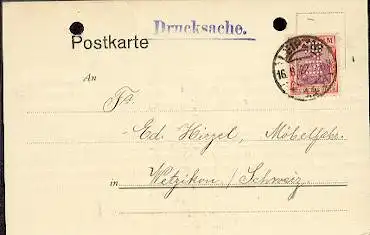 Drucksache.
Postkarte
An
Fa.
Ed. Hirzel, Möbelfabr.
in Wetzikon / Schweiz.